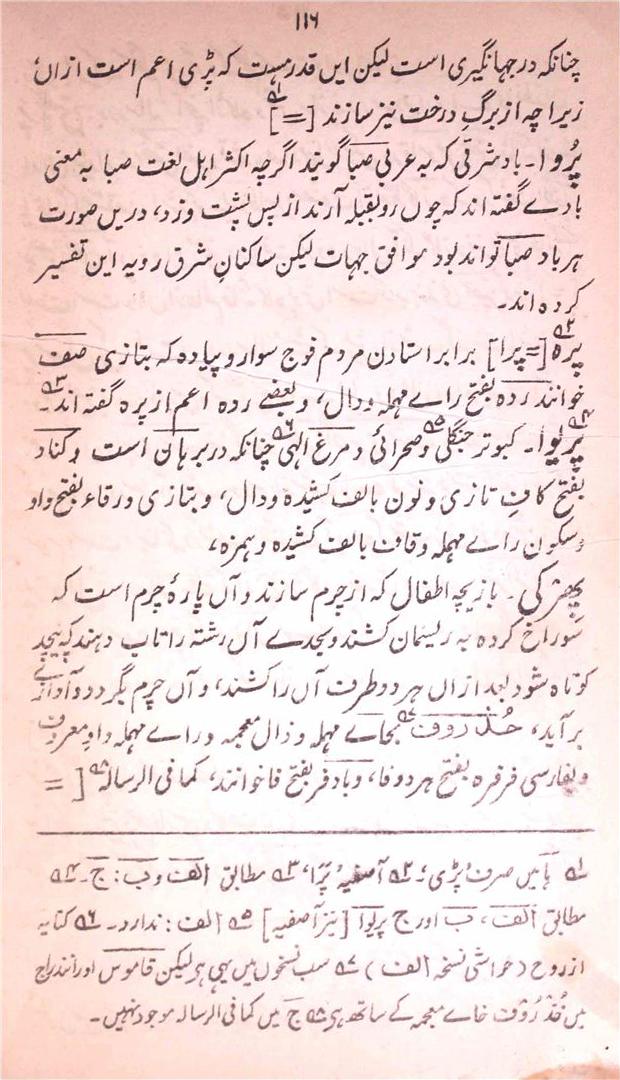 ۱۱۶
چنانکہ در جہانگیری است لیکن ایں قدر ہست کہ پڑی اعم است ازاں
زیراچہ از برگِ درخت نیز سازند [=]۱؎
پُروا۔ بادشرقی کہ بہ عربی صبا گویند اگرچہ اکثر اہل لغت صبا بہ معنی
بادے گفتہ اند کہ چوں رو بقبلہ آرند از پس پشت وزد، دریں صورت
ہر باد صبا تواند بود موافق جہات لیکن ساکنانِ شرق رویہ این تفسیر
کردہ اند۔
پرہ۲؎ [=پرا] برابر استادن مردم فوج سوار و پیادہ کہ بتازی صف
خوانند ردہ بفتح راے مہملہ و دال، و بعضے ردہ اعم از پرہ گفتہ اند۳؎۔
پریوا۴؎۔ کبوتر جنگلی۵؎ و صحرائی و مرغ الہی۶؎ چنانکہ در برہان است و کناد
بفتح کافِ تازی و نون بالف کشیدہ و دال، و بتازی ورقاء بفتح واو
و سکون راے مہملہ و قاف بالف کشیدہ و ہمزہ،
پھرکی۔ بازیچہ اطفال کہ از چرم سازند و آں پارۂ چرم است کہ
سوراخ کردہ بہ ریسمان کشند و بحدے آں رشتہ را تاب دہند کہ بیچد
کوتاہ شود بعد ازاں ہر دو طرف آں را کشند، و آں چرم بگردد و آوازے
برآید، حذروف۷؎ بحاے مہملہ و ذال معجمہ و راے مہملہ و واو معروف
و بفارسی فرفرہ بفتح ہر دو فا، و بادفر بفتح فا خوانند، کما فی الرسالہ۸؎ [=
۱؎ ہامیں صرف پڑی؛ ۲؎ آصفیہ پَرَا، ۳؎ مطابق الف و ب : ج۔ ۴؎
مطابق الف، ب اور ج پریوا [نیز آصفیہ] ۵؎ الف : ندارد۔ ۶؎ کنایہ
از روح (حواشی نسخہ الف) ۷؎ سب نسخوں میں یہی ہے لیکن قاموس اور انندراج
میں خُذرُوف خاے معجمہ کے ساتھ ہی ۸؎ ج میں کما فی الرسالہ موجود نہیں۔